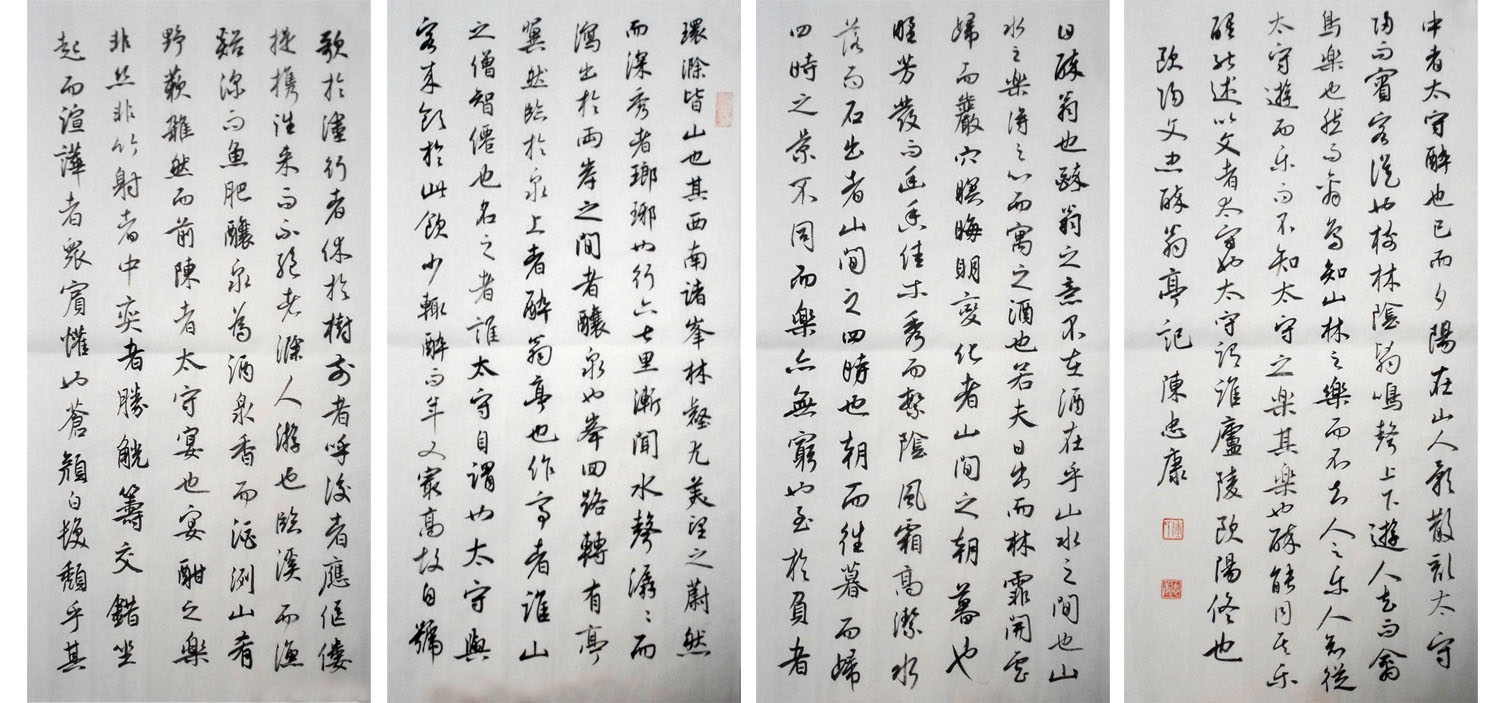 環滁皆山也其西南諸峯林壑尤美望之蔚然
而深秀者瑯琊也行六七里漸聞水聲潺〻而
瀉出於兩峯之間者釀泉也峯回路轉有亭
翼然臨於泉上者醉翁亭也作亭者誰山
之僧智僊也名之者誰太守自謂也太守與
客來飲於此飲少輒醉而年又最高故自號
曰醉翁也醉翁之意不在酒在乎山水之間也山
水之樂得之心而寓之酒也若夫日出而林霏開雲
歸而巖穴暝晦明變化者山間之朝暮也
野芳發而幽香佳木秀而繁陰風霜高潔水
落而石出者山間之四時也朝而往暮而歸
四時之景不同而樂亦無窮也至於負者
歌於塗行者休於樹前者呼後者應傴僂
提攜往來而不絕者滁人游也臨溪而漁
谿深而魚肥釀泉為酒泉香而酒洌山肴
野蔌雜然而前陳者太守宴也宴酣之樂
非絲非竹射者中奕者勝觥籌交錯坐
起而諠譁者眾賓懽也蒼顏白髮頹乎其
中者太守醉也已而夕陽在山人影散亂太守
歸而賓客從也樹林陰翳鳴聲上下遊人去而禽
鳥樂也然而禽鳥知山林之樂而不知人之樂人知從
太守遊而樂而不知太守之樂其樂也醉能同其樂
醒能述以文者太守也太守謂誰廬陵歐陽修也
歐陽文忠醉翁亭記 陳忠康